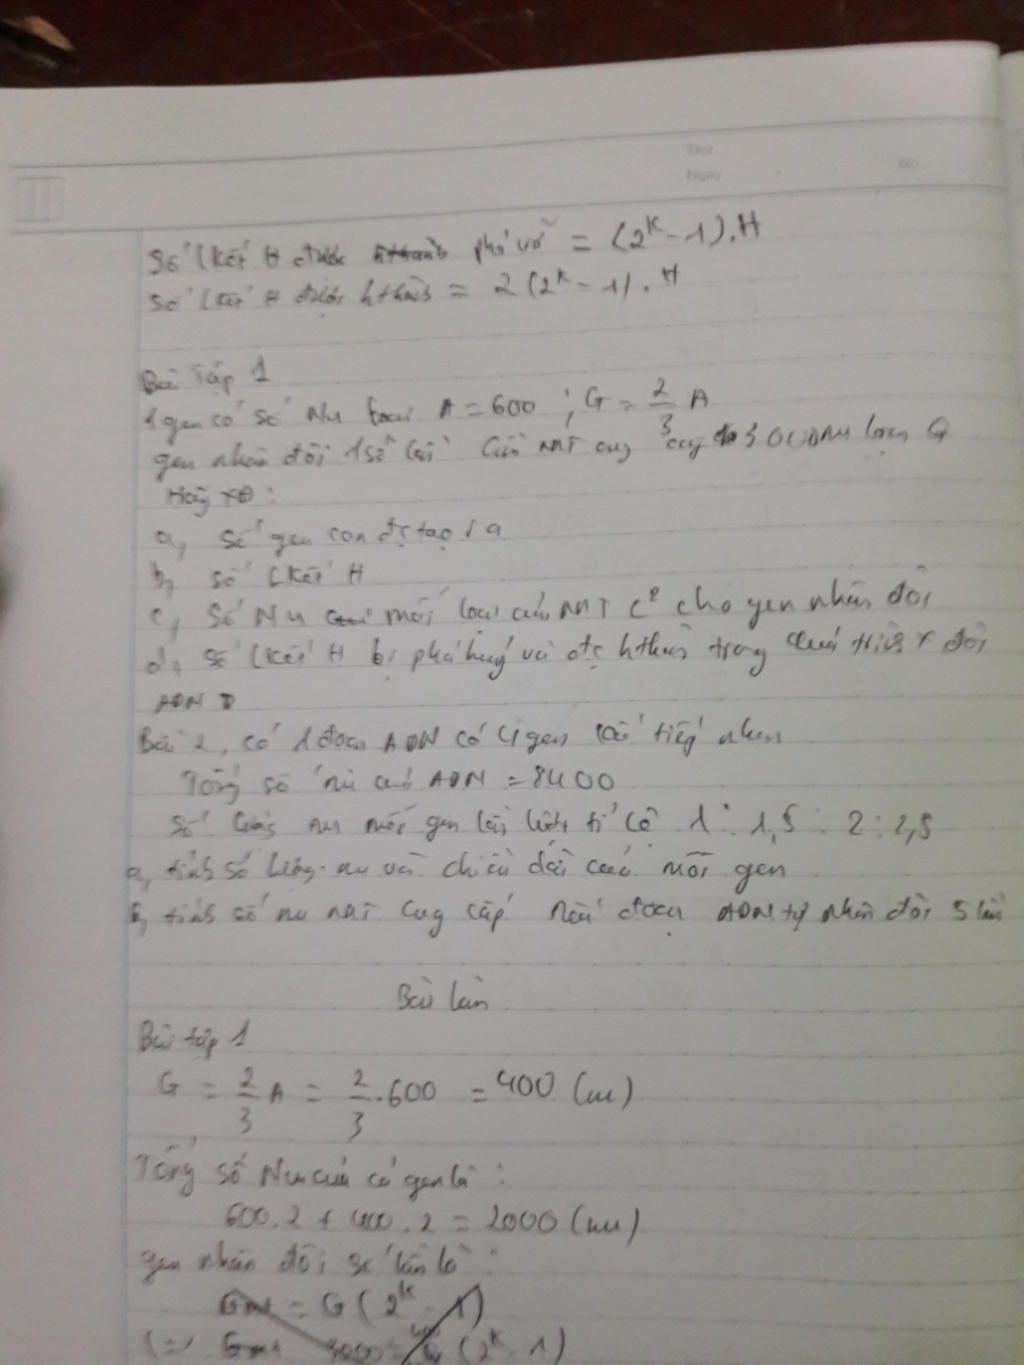 Thứ
Ngày
Số lkết H được phá vỡ = (2^k - 1).H
Số lkết H được hthành = 2(2^k - 1).H
Bài Tập 1
1 gen có số Nu loại A = 600 ; G = 2/3 A
gen nhân đôi 1 số lần cần MT cung cấp Nu loại G
Hãy XĐ:
a, Số gen con đc tạo ra
b, số lkết H
c, Số Nu mỗi loại của MT c² cho gen nhân đôi
d, số lkết H bị phá huỷ và đc hthành trong quá trình x đôi
ADN
Bài 2, có 1 đoạn ADN có 4 gen kế tiếp nhau
Tổng số nu của ADN = 8400
Số lượng nu mỗi gen lần lượt tỉ lệ 1 : 1,5 : 2 : 2,5
a, tính số lượng nu và chiều dài của mỗi gen
b, tính số nu MT cung cấp nếu đoạn ADN tự nhân đôi 5 lần
Bài làm
Bài tập 1
G = 2/3 A = 2/3 . 600 = 400 (nu)
Tổng số Nu của cả gen là :
600.2 + 400.2 = 2000 (nu)
gen nhân đôi số lần là :
Gmt = G(2^k - 1)
(=) Gmt (2^k - 1)